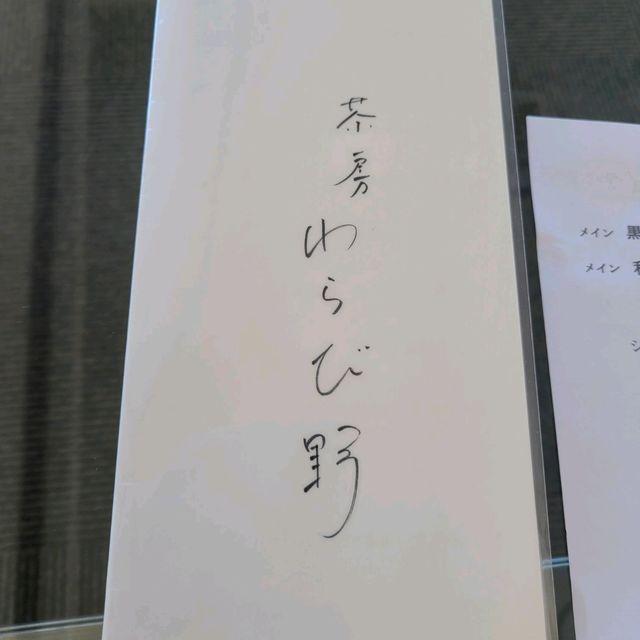 茶房
わらび野
メイン 黒
メイン
シ